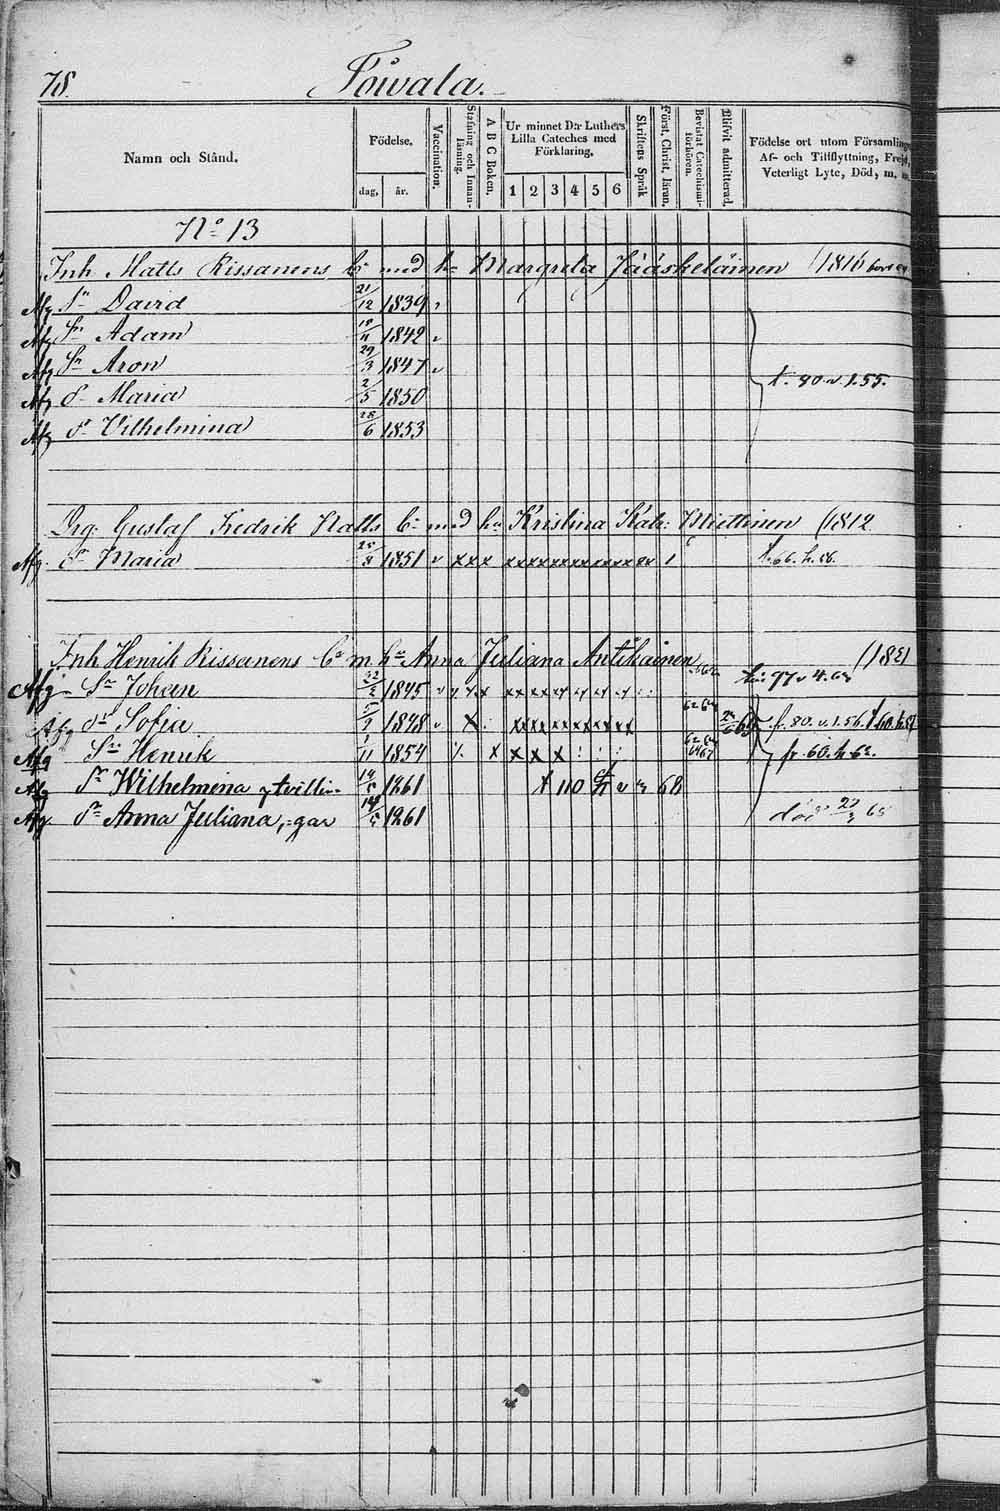 78. Towala.
Namn och Stånd.
Födelse.
dag, år.
Vaccination.
Stafning och Innan-
läsning.
A B C Boken.
Ur minnet D:r Luthers
Lilla Cateches med
Förklaring.
1 2 3 4 5 6
Skriftens Språk
Först. Christ. läran.
Bevistat Catechismi-
förhören.
Blifvit admitterad.
Födelse ort utom Församlingen
Af- och Tillflyttning, Frejd,
Veterligt Lyte, Död, m. m.
No 13
Inh Matts Rissanens b: med h: Margreta Jääskeläinen (1816
Afg Sn David 21/12 1839 v
Afg Sn Adam 10/11 1842 v
Afg Sn Aron 29/3 1847 v
Afg dr Maria 2/5 1850 t. 80 v. 1.55.
Afg dr Vilhelmina 28/6 1853
Drg: Gustaf Fredrik Halls b: med h: Kristina Kat: Miettinen (1812
Afg. dr Maria 25/8 1851 v x x x x x x x x x x x x x x x 1 t. 66. h. 68.
Inh Henrik Rissanens b: m. h: Anna Juliana Antikainen (1821
Afg Sn Johan 22/2 1845
Afg dr Sofia 5/9 1848 v X fr. 80. v. 1.56.
Afg Sn Henrik 1/11 1854 X X X X fr. 60. h 62.
Afg dr Wilhelmina tvillin- 14/5 1861 68
Afg dr Anna Juliana, -gar 14/5 1861 död 65